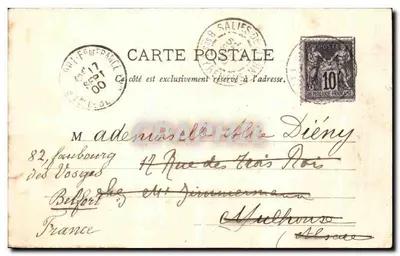 CARTE POSTALE
Ce côté est exclusivement réservé à l'adresse.
SALIES-DE-
17
SEPT
00
POSTES
10
REPUBLIQUE FRANCAISE
Mademoiselle Alice Diény
17 Rue des Trois Rois
chez Mr Zimmermann
Mulhouse
(Alsace)
82, faubourg
des Vosges
Belfort
France